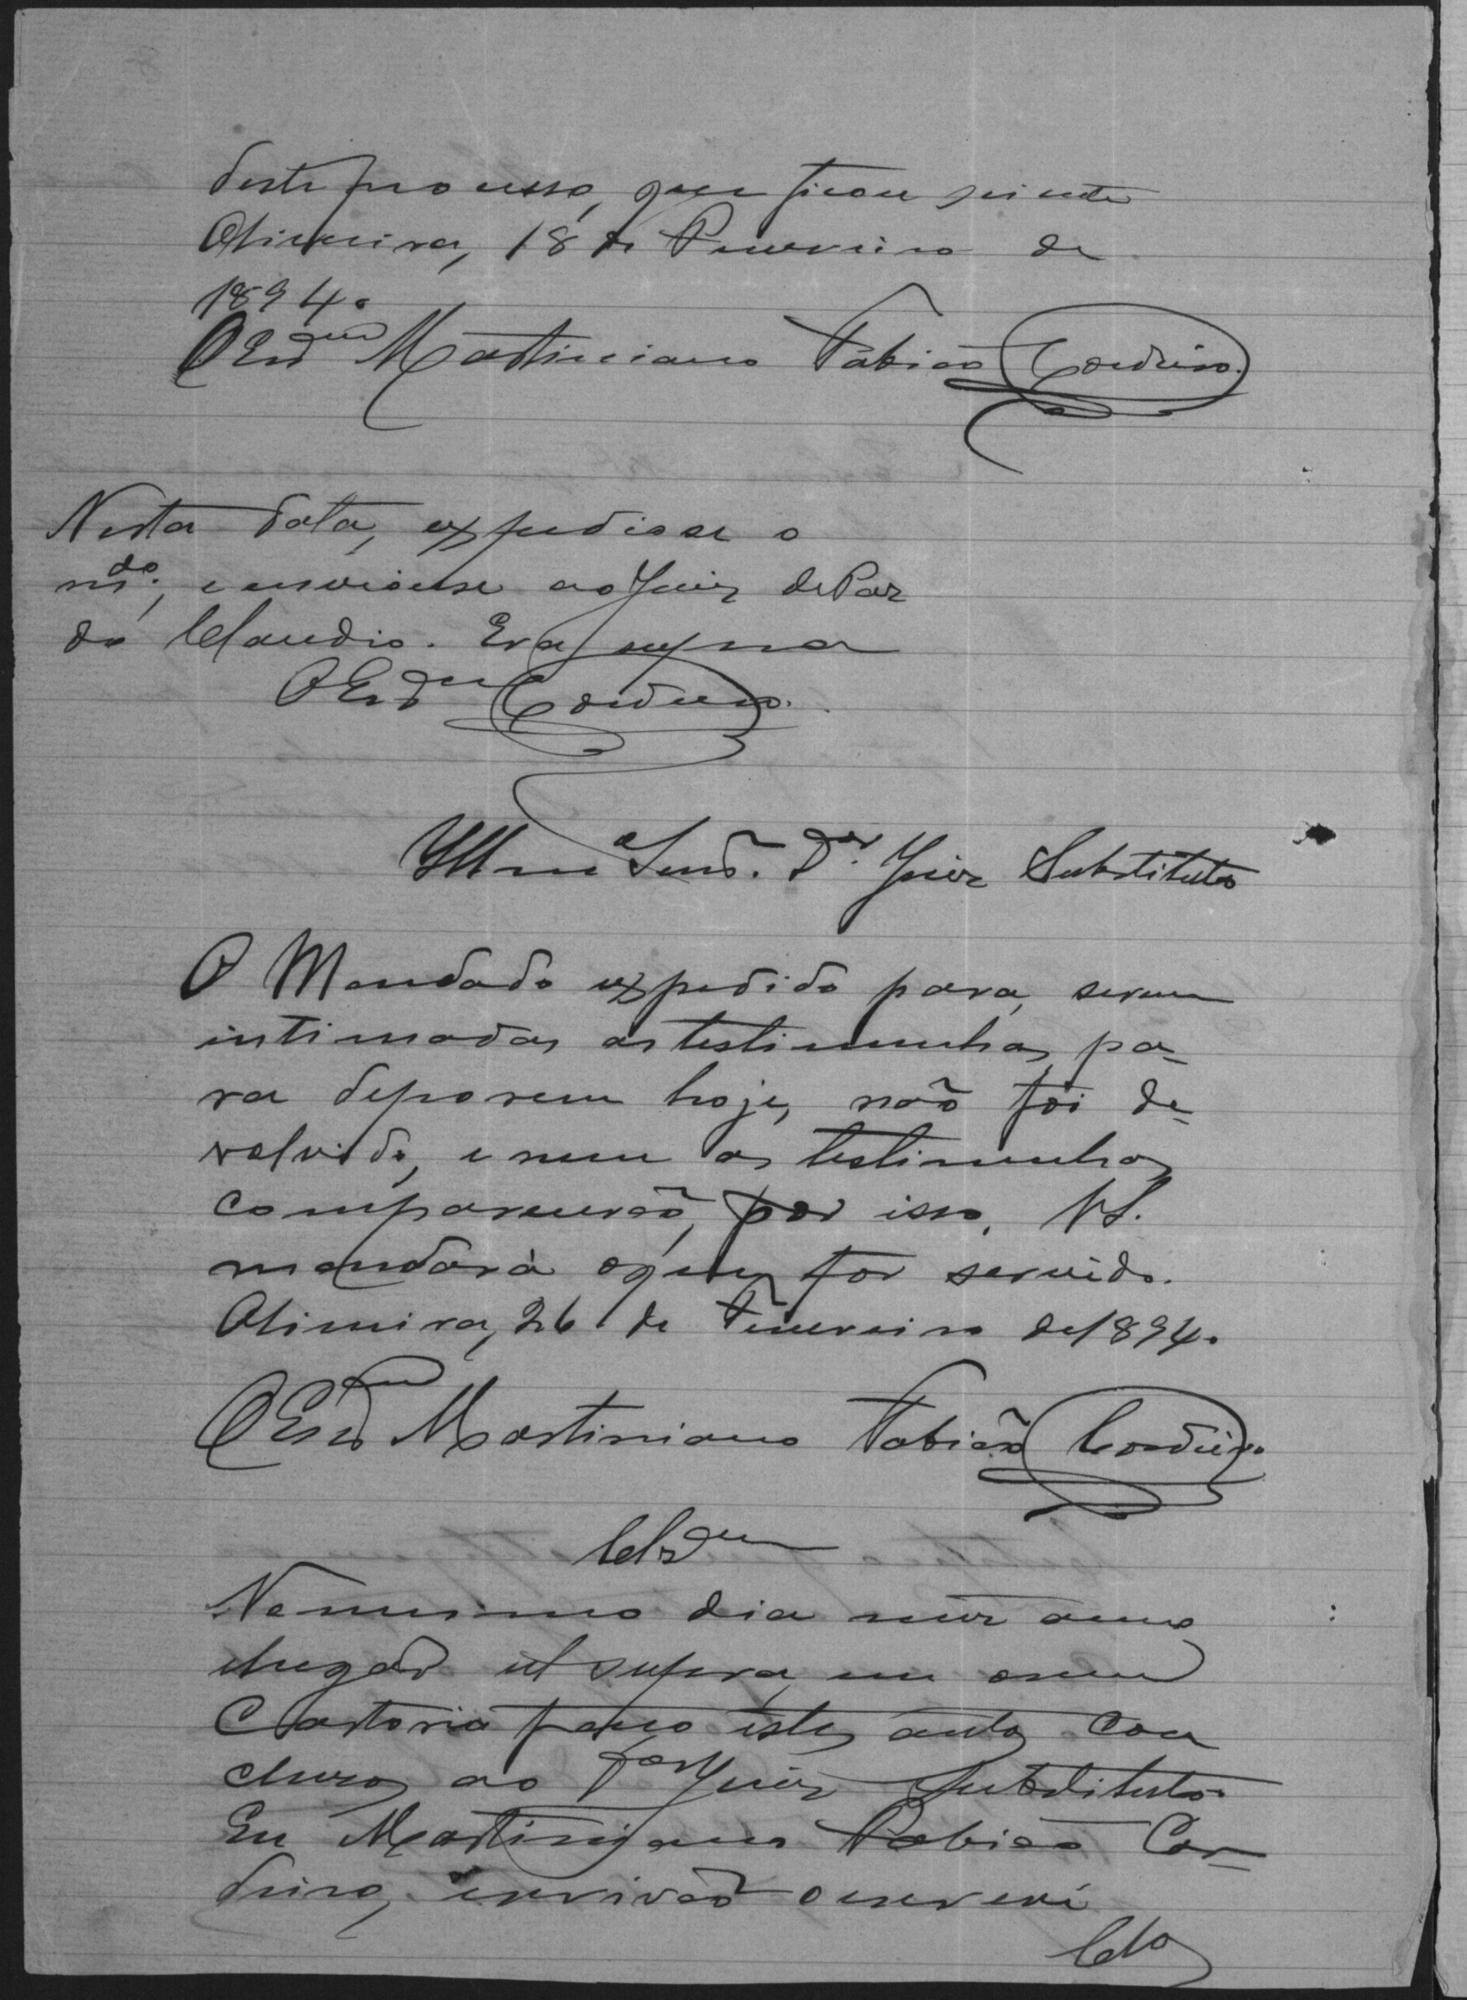 deste processo, que ficou sciente
Oliveira, 18 de Fevereiro de
1894.
O Escr.am Martiniano Fabião Cordeiro.
Nesta data, expediose o
md.do, e enviouse ao Juiz de Paz
do Claudio. Era supra
O Escr.am Cordeiro.
Illmo Senr. Dr. Juiz Substituto
O Mandado expedido para serem
intimadas as testimunhas pa-
ra deporem hoje, não foi de-
volvido, e nem as testimunhas
comparecerão, por isso, V.S.
mandará o que for servido.
Oliveira, 26 de Fevereiro de 1894.
O Escr.am Martiniano Fabião Cordeiro
Clsam
No mesmo dia mez anno
e lugar ut supra, em o meu
Cartorio faço estes autos con
clusos ao Dor Juiz Substituto.
Eu Martiniano Fabião Cor-
deiro, escrivão o escrevi
Clos